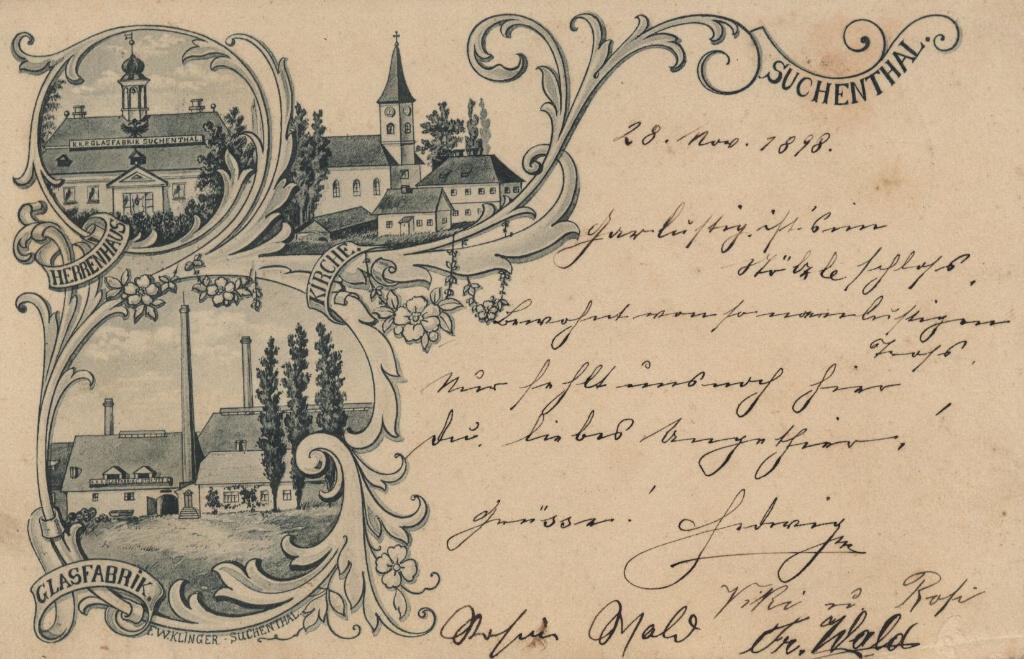 SUCHENTHAL.
28. Nov. 1898.
K.K.P. GLASFABRIK SUCHENTHAL
HERRENHAUS
KIRCHE.
GLASFABRIK.
WKLINGER - SUCHENTHAL
Gar lustig ist's im
Stölzle schloss,
Bewohnt von so
Tross.
Nur fehlt uns noch hier,
Du, liebes Ungethier.
Grüsse! Hedwig
Viki u Rosi
Wald
Fr. Wald